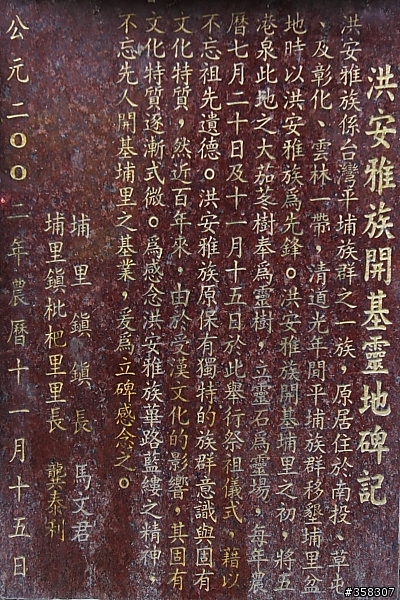 洪安雅族開基靈地碑記
洪安雅族係台灣平埔族群之一族，原居住於南投、草屯
、及彰化、雲林一帶，清道光年間平埔族群移墾埔里盆
地時以洪安雅族為先鋒。洪安雅族開基埔里之初，將五
港泉此地之大茄苳樹奉為靈樹，立靈石為靈場，每年農
曆七月二十日及十一月十五日於此舉行祭祖儀式，藉以
不忘祖先遺德。洪安雅族原保有獨特的族群意識與固有
文化特質，然近百年來，由於受漢文化的影響，其固有
文化特質逐漸式微。為感念洪安雅族篳路藍縷之精神，
不忘先人開基埔里之基業，爰為立碑感念之。
埔里鎮鎮長 馬文君
埔里鎮枇杷里里長 龔泰利
公元二00二年農曆十一月十五日
#358307